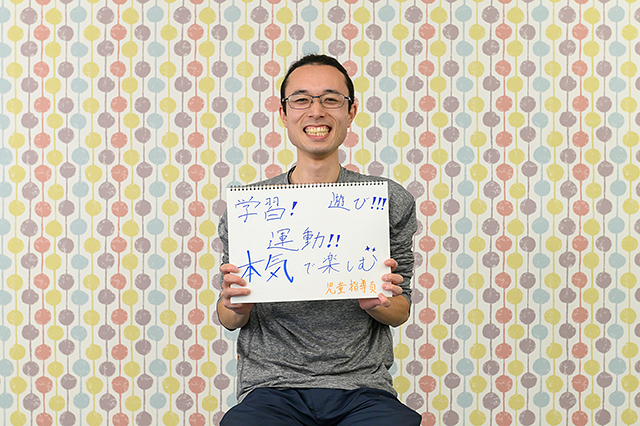 学習! 遊び!!!
運動!!
本気で楽しむ
児童指導員